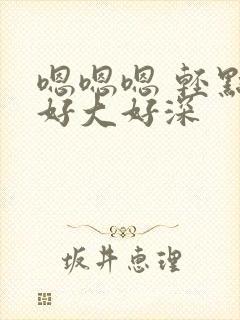 嗯嗯嗯 轻點
好大好深
坂井恵理